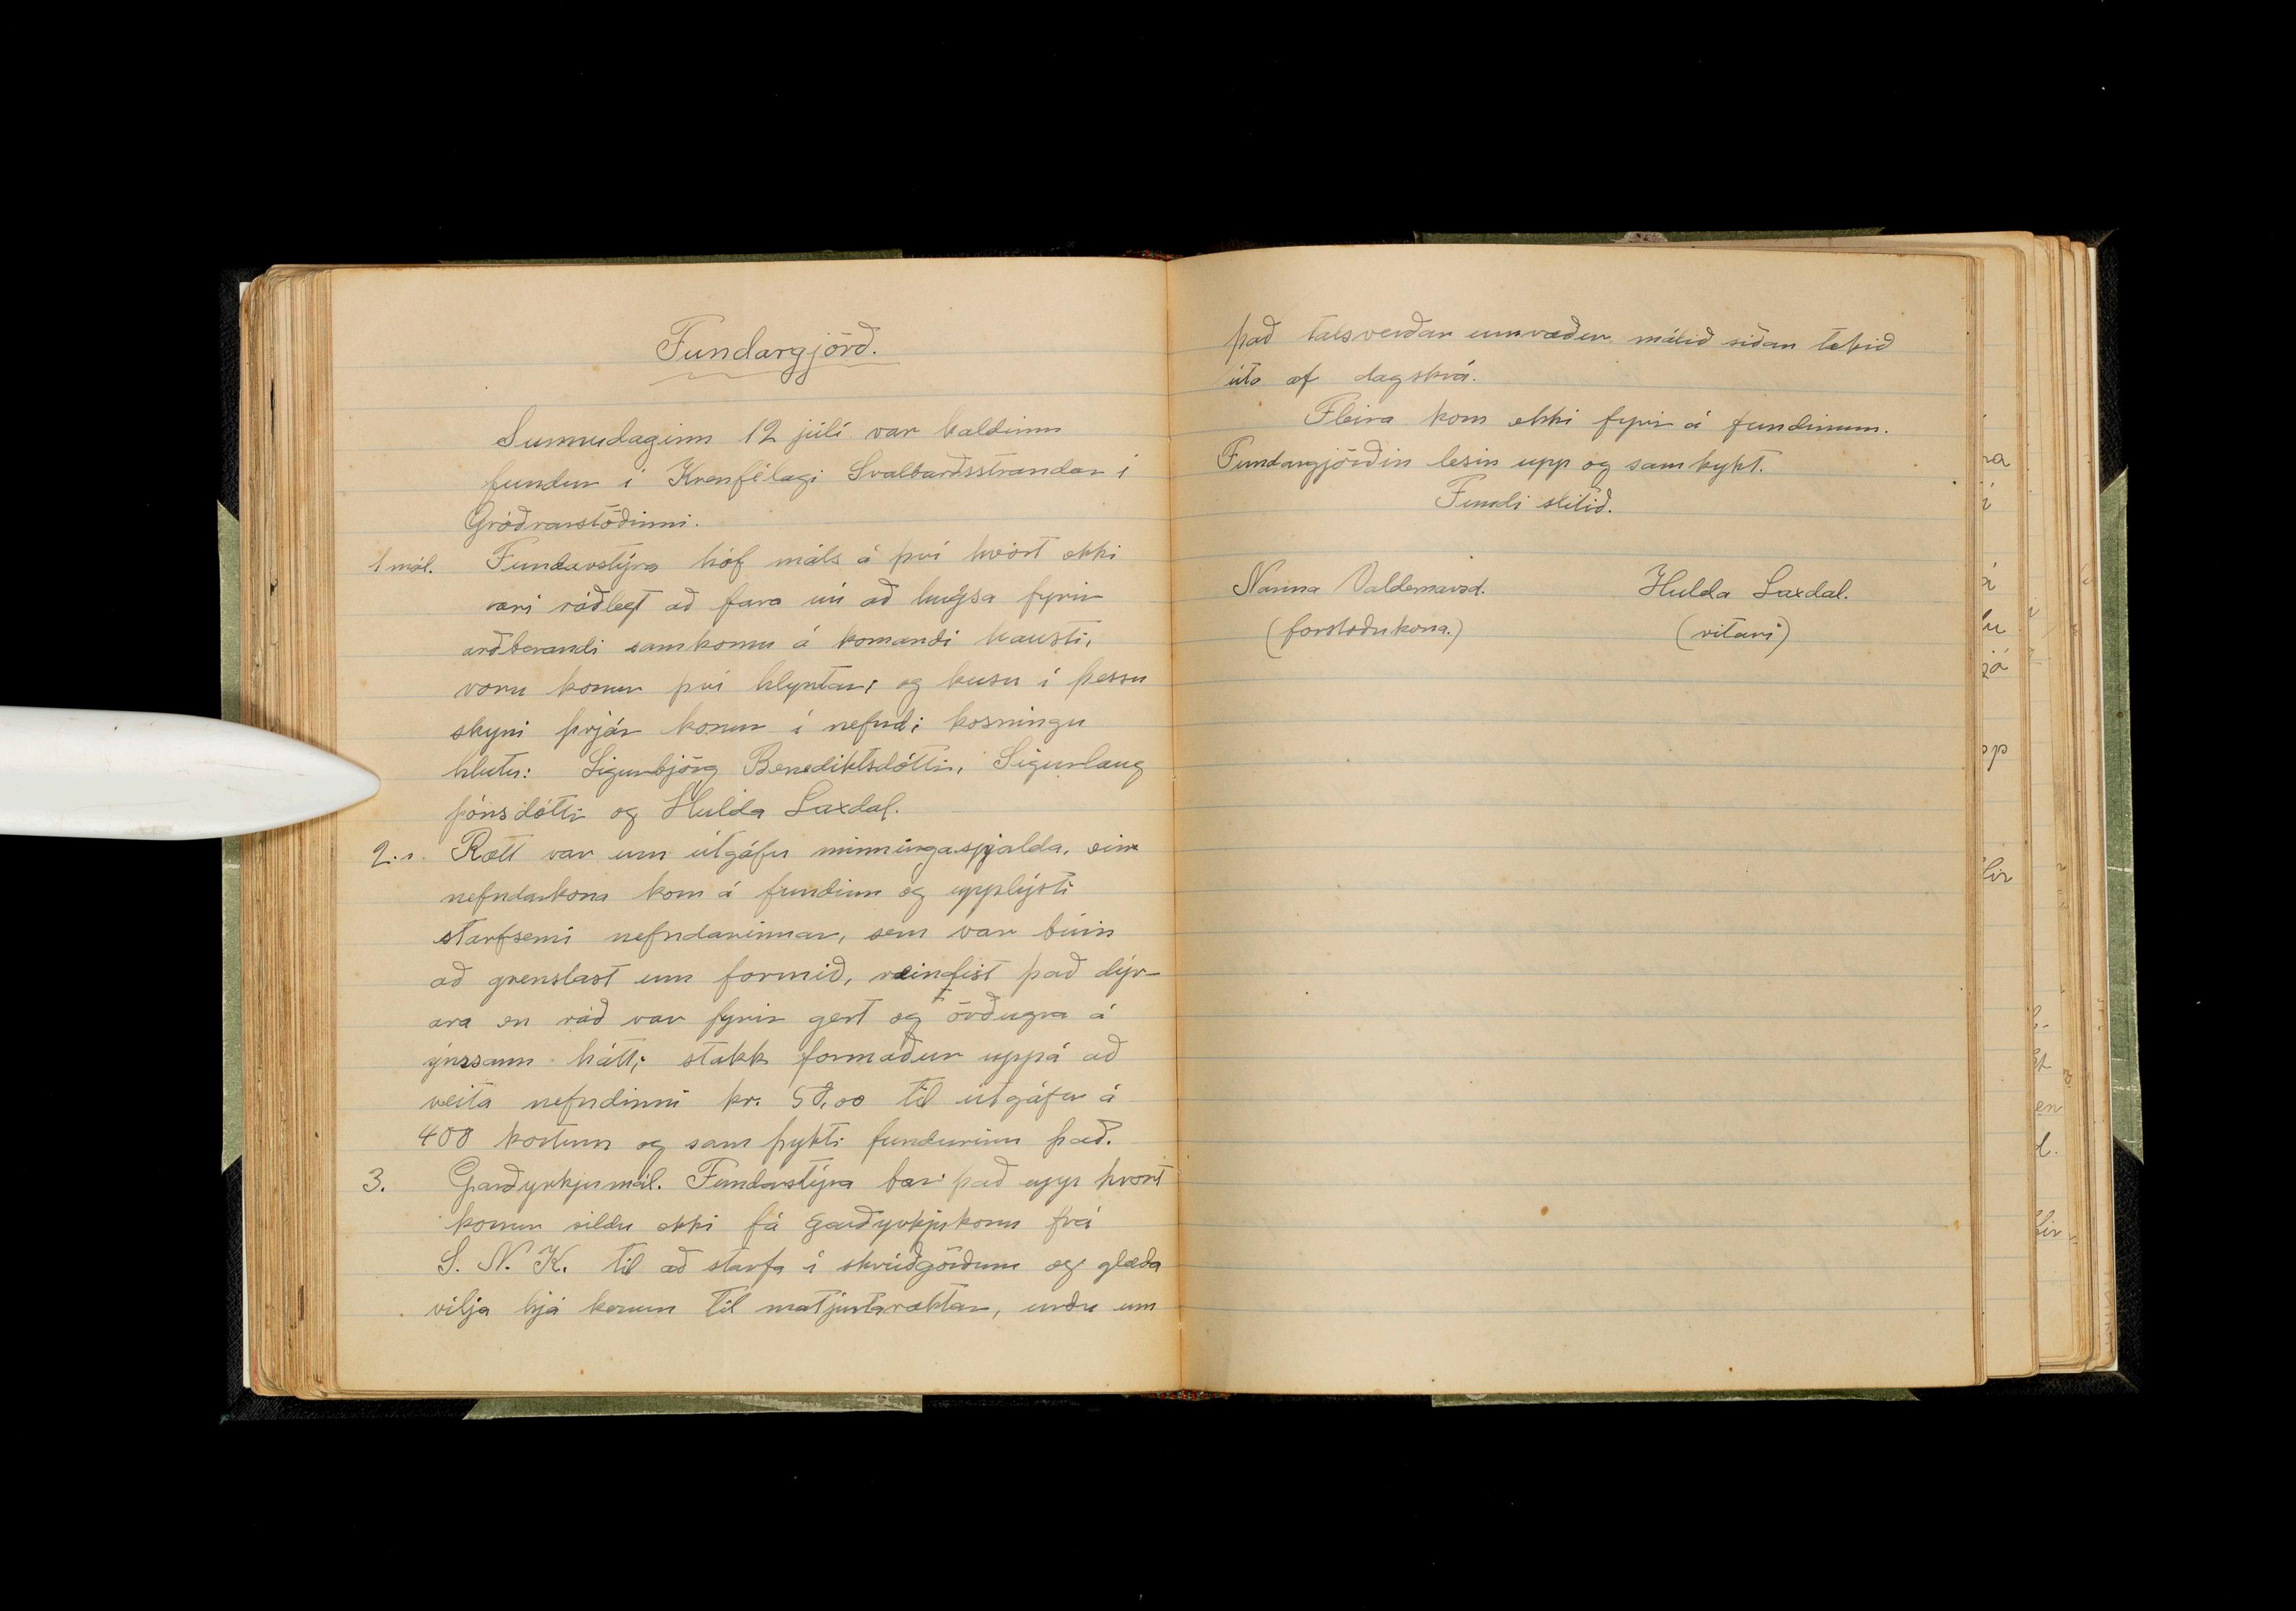 Fundargjörð.
Sunnudaginn 12 júlí var haldinn
fundur í Kvenfélagi Svalbarðsstrandar í
Gróðrarstöðinni.
1 mál. Fundarstýra hóf máls á því hvört ekki
væri ráðlegt að fara nú að hugsa fyrir
arðberandi samkomu á komandi hausti,
voru konur því hlyntar; og kusu í þessu
skyni þrjár konur í nefnd; kosningu
hlutu: Sigurbjörg Benediktsdóttir, Sigurlaug
Jónsdóttir og Hulda Laxdal.
2. Rætt var um útgáfu minningaspjalda, ein
nefndarkona kom á fundinn og upplýsti
starfsemi nefndarinnar, sem var búin
að grenslast um formið, reindist það dýr-
ara en ráð var fyrir gert og örðugra á
ýmsann hátt; stakk formaður uppá að
veita nefndinni kr. 50,00 til útgáfu á
400 kortum og samþykti fundurinn það.
3. Garðyrkjumál. Fundarstýra bar það upp hvort
konur vildu ekki fá garðyrkjukonu frá
S. N. K. til að starfa í skrúðgörðum og glæða
vilja hjá konum til matjurtaræktar, urðu um
það talsverðar umræður málið síðan tekið
útaf dagskrá.
Fleira kom ekki fyrir á fundinum.
Fundargjörðin lesin upp og samþykt.
Fundi slitið.
Nanna Valdemarsd. Hulda Laxdal.
(forstöðukona.) (ritari)